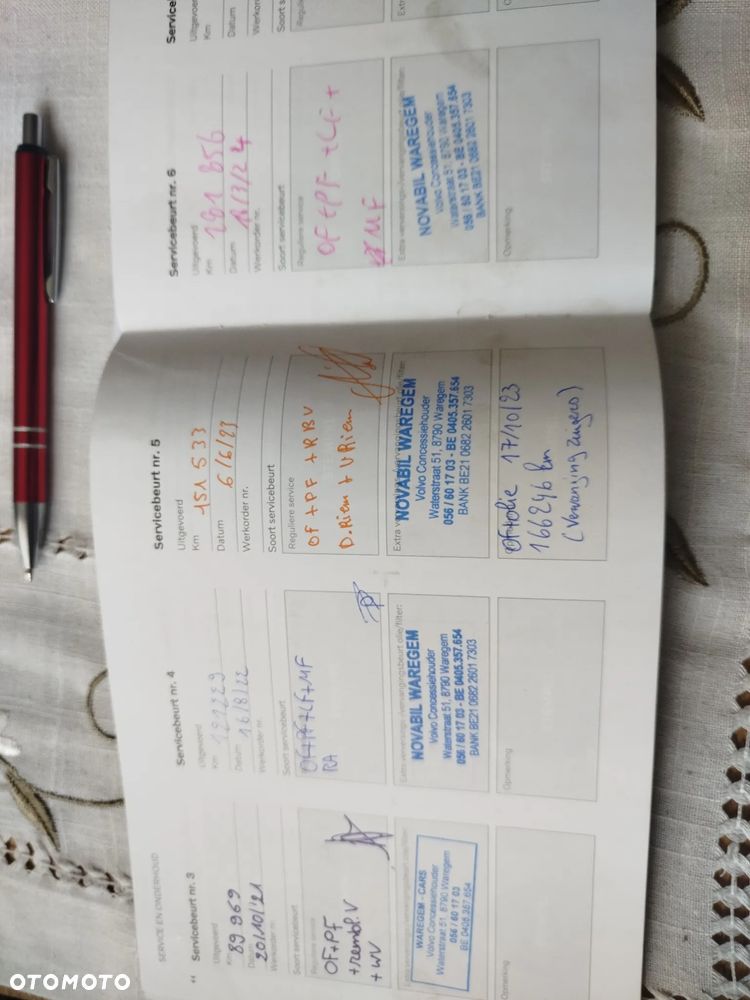 SERVICE EN ONDERHOUD
Servicebeurt nr. 3
Uitgevoerd
Km 89 969
Datum 20/10/'21
Werkorder nr.
Soort servicebeurt
Reguliere service
OF+PF
+rembl. V
+WV
WAREGEM - CARS
Volvo Concessiehouder
Waterstraat 51, 8790 Waregem
056 / 60 17 03
BE 0405.357.654
Opmerking
Servicebeurt nr. 4
Uitgevoerd
Km
Datum 16/8/22
Werkorder nr.
Soort servicebeurt
OF+PF+LF+MF
RA
Extra verversingsbeurt olie/filter:
NOVABIL WAREGEM
Volvo Concessiehouder
Waterstraat 51, 8790 Waregem
056 / 60 17 03 - BE 0405.357.654
BANK BE21 0682 2601 7303
Opmerking
Servicebeurt nr. 5
Uitgevoerd
Km 151 533
Datum 6/6/23
Werkorder nr.
Soort servicebeurt
Reguliere service
OF +PF +RBV
D.Riem + V Riem
NOVABIL WAREGEM
Volvo Concessiehouder
Waterstraat 51, 8790 Waregem
056 / 60 17 03 - BE 0405.357.654
BANK BE21 0682 2601 7303
OF+olie 17/10/23
166246 km
Servicebeurt nr. 6
Uitgevoerd
Km 181 856
Datum
Werkorder nr.
Soort servicebeurt
Reguliere service
OF +PF +LF +
MF
NOVABIL WAREGEM
Volvo Concessiehouder
Waterstraat 51, 8790 Waregem
056 / 60 17 03 - BE 0405.357.654
BANK BE21 0682 2601 7303
Opmerking
Uitgevoerd
Km
Datum
OTOMOTO